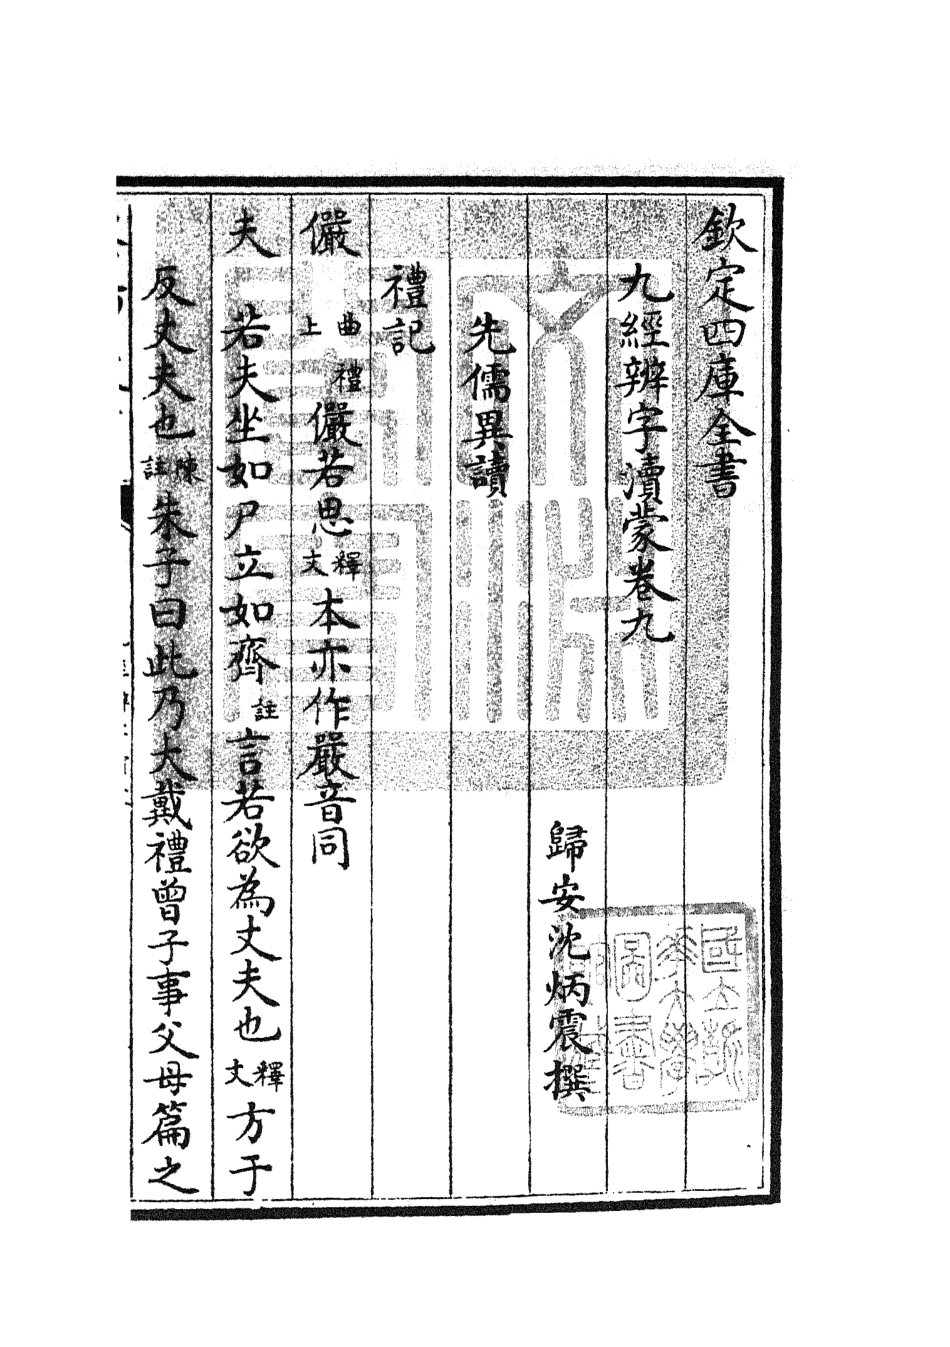 欽定四庫全書
九經辨字瀆蒙卷九
歸安沈炳震撰
先儒異讀
禮記
儼 曲禮上 儼若思 釋文 本亦作嚴音同
夫 若夫坐如尸立如齊 註 言若欲為丈夫也 釋文 方于
反丈夫也 陳註 朱子曰此乃大戴禮曾子事父母篇之